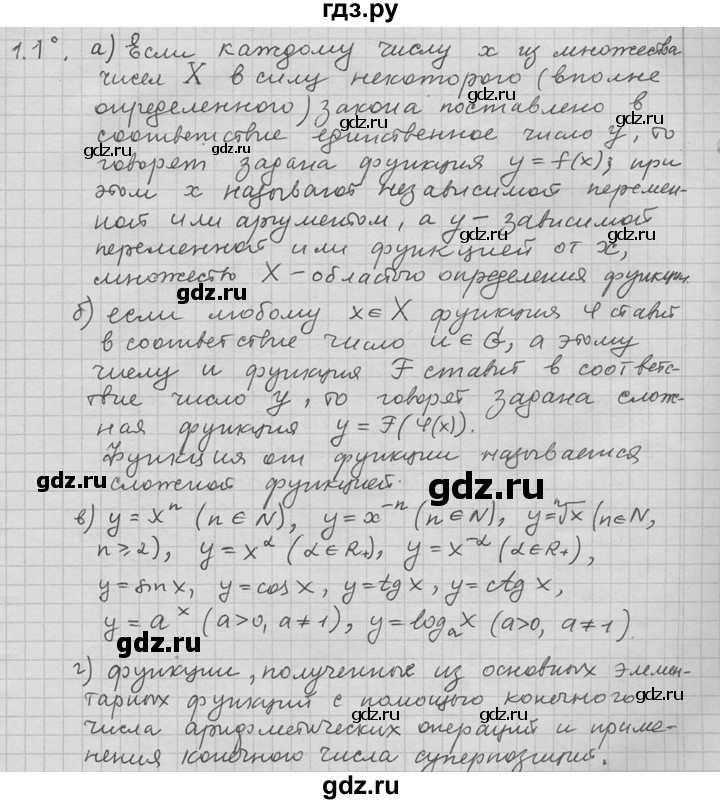 гдз.ру
1.1°. а) Если каждому числу x из множества
чисел X в силу некоторого (вполне
определенного) закона поставлено в
соответствие единственное число y, то
говорят задана функция y = f(x); при
этом x называют независимой перемен-
ной или аргументом, а y - зависимой
переменной или функцией от x,
множество X - областью определения функции.
б) если любому x ∈ X функция φ ставит
в соответствие число u ∈ G, а этому
числу u функция F ставит в соответс-
твие число y, то говорят задана слож-
ная функция y = F(φ(x)).
Функция от функции называется
сложной функцией.
в) y = xⁿ (n ∈ N), y = x⁻ⁿ (n ∈ N), y = ⁿ√x (n ∈ N,
n ≥ 2), y = x^α (α ∈ R₊), y = x^-α (α ∈ R₊),
y = sin x, y = cos x, y = tg x, y = ctg x,
y = aˣ (a>0, a≠1), y = logₐ x (a>0, a≠1).
г) функции, полученные из основных элемен-
тарных функций с помощью конечного
числа арифметических операций и приме-
нения конечного числа суперпозиций.
gdz.ru